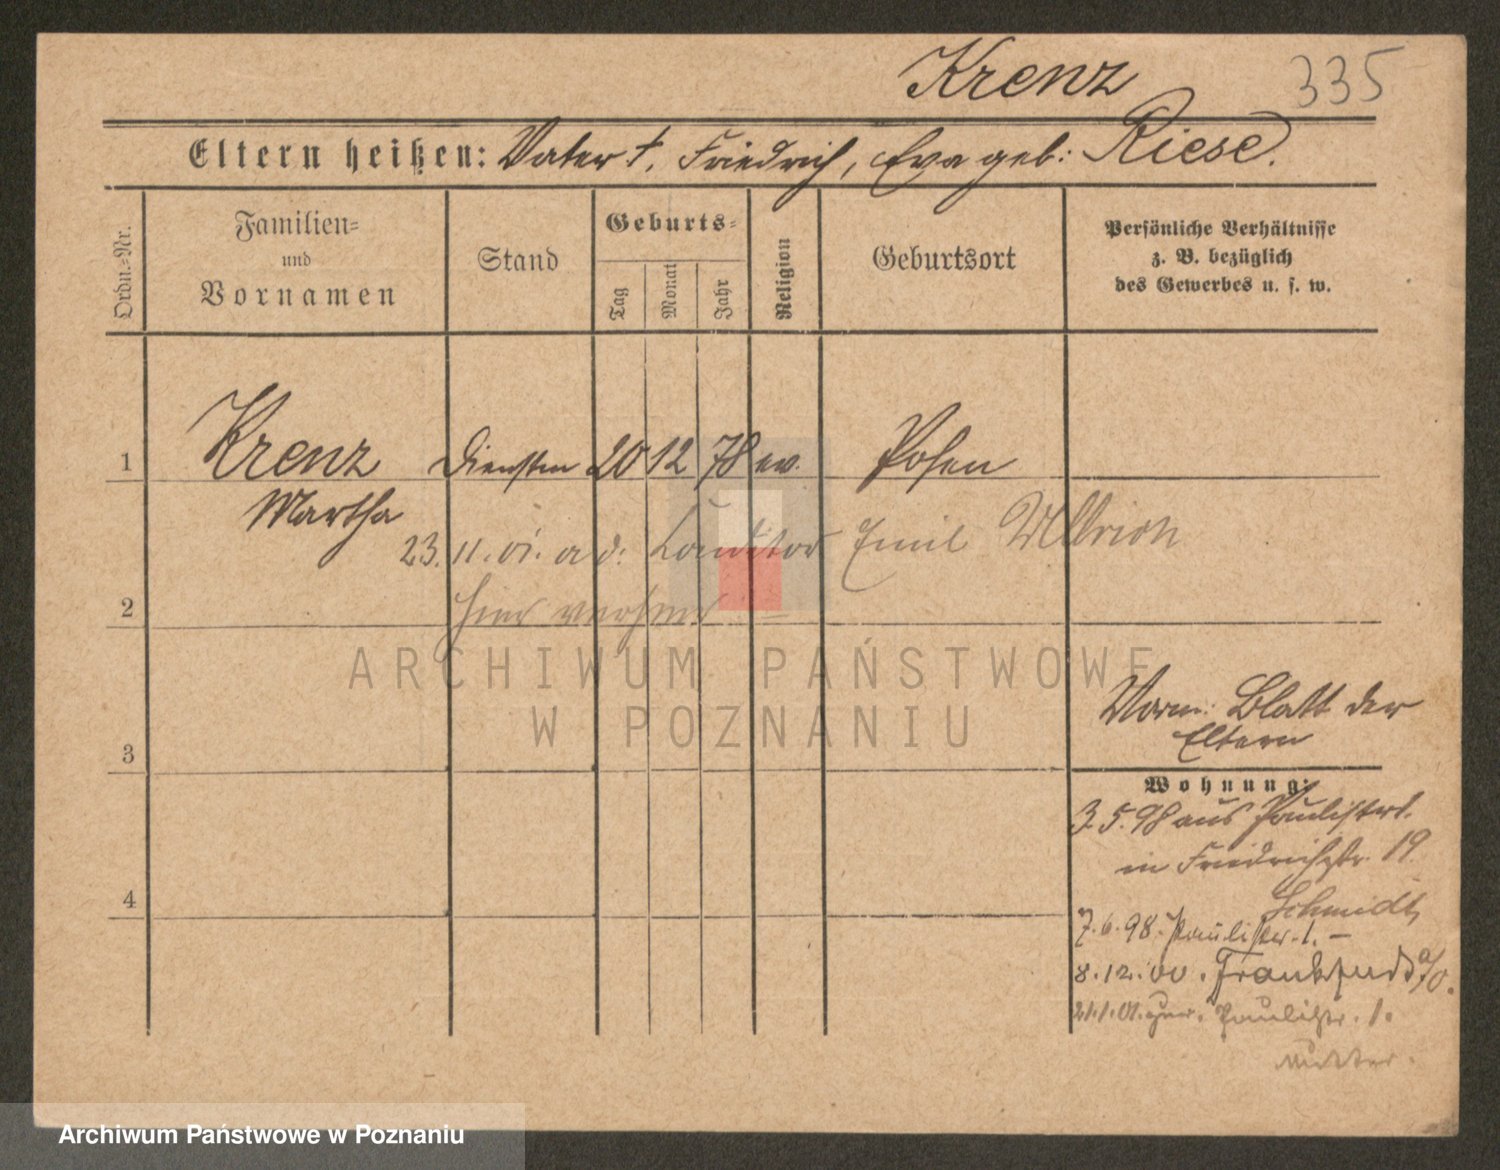 Krenz 335
Eltern heißen: Vater †. Friedrich, Eva geb: Riese.
Ordn.-Nr.
Familien-
und
Vornamen
Stand
Geburts-
Tag
Monat
Jahr
Religion
Geburtsort
Persönliche Verhältnisse
z. B. bezüglich
des Gewerbes u. s. w.
1 Krenz 20 12 78 ev. Posen
Martha
23. 11. 01. a d: Conditor Emil Ullrich
2 hier
ARCHIWUM PAŃSTWOWE
W POZNANIU
Blatt der
Eltern
3
Wohnung:
3.5.98 aus Paulistr 1.
in Friedrichstr. 19
Schmidt,
4
7.6.98. Paulistr. 1. –
8.12.00. Frankfurt a/O.
21.1.01. Paulistr. 1.
Mutter.
Archiwum Państwowe w Poznaniu